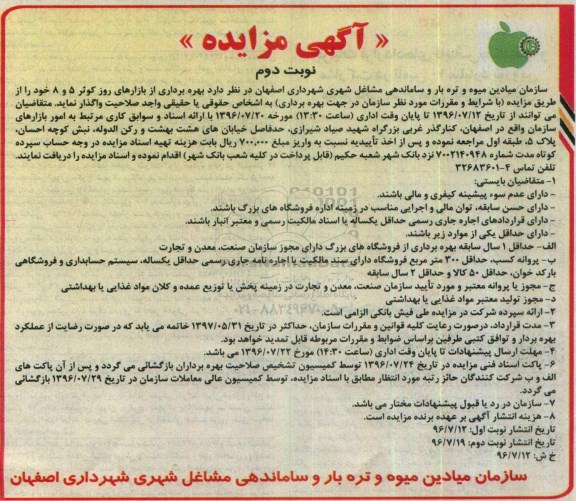 « آگهی مزایده »
نوبت دوم
سازمان میادین میوه و تره بار و ساماندهی مشاغل شهری شهرداری اصفهان در نظر دارد بهره برداری از بازارهای روز کوثر ۵ و ۸ خود را از
طریق مزایده (با شرایط و مقررات مورد نظر سازمان در جهت بهره برداری) به اشخاص حقوقی یا حقیقی واجد صلاحیت واگذار نماید. متقاضیان
می توانند از تاریخ ۱۳۹۶/۰۷/۱۲ تا پایان وقت اداری (ساعت ۱۳:۳۰) مورخه ۱۳۹۶/۰۷/۲۰ با ارائه اسناد و سوابق کاری مرتبط به امور بازارهای
سازمان واقع در اصفهان، کنارگذر غربی بزرگراه شهید صیاد شیرازی، حدفاصل خیابان های هشت بهشت و رکن الدوله، نبش کوچه احسان،
پلاک ۵، طبقه اول مراجعه نموده و پس از اخذ تأییدیه نسبت به واریز مبلغ ۷۰۰,۰۰۰ ریال بابت هزینه تهیه اسناد مزایده در وجه حساب سپرده
کوتاه مدت شماره ۷۰۰۲۱۴۰۹۴۸ نزد بانک شهر شعبه حکیم (قابل پرداخت در کلیه شعب بانک شهر) اقدام نموده و اسناد مزایده را دریافت نمایند.
تلفن تماس ۴-۳۲۶۸۳۶۰۱
۱- متقاضیان بایستی:
- دارای عدم سوء پیشینه کیفری و مالی باشند.
- دارای حسن سابقه، توان مالی و اجرایی مناسب در زمینه اداره فروشگاه های بزرگ باشند.
- دارای قراردادهای اجاره جاری رسمی حداقل یکساله یا اسناد مالکیت رسمی و معتبر انبار باشند.
- دارای حداقل یکی از موارد زیر باشند.
الف- حداقل ۱ سال سابقه بهره برداری از فروشگاه های بزرگ دارای مجوز سازمان صنعت، معدن و تجارت
ب- پروانه کسب، حداقل ۳۰۰ متر مربع فروشگاه دارای سند مالکیت یا اجاره نامه جاری رسمی حداقل یکساله، سیستم حسابداری و فروشگاهی
بارکد خوان، حداقل ۵۰ کالا و حداقل ۲ سال سابقه
ج- مجوز یا پروانه معتبر و مورد تأیید سازمان صنعت، معدن و تجارت در زمینه پخش یا توزیع عمده و کلان مواد غذایی یا بهداشتی
د- مجوز تولید معتبر مواد غذایی یا بهداشتی
۲- ارائه سپرده شرکت در مزایده طی فیش بانکی الزامی است.
۳- مدت قرارداد، درصورت رعایت کلیه قوانین و مقررات سازمان، حداکثر در تاریخ ۱۳۹۷/۰۵/۳۱ خاتمه می یابد که در صورت رضایت از عملکرد
بهره بردار و توافق کتبی طرفین براساس ضوابط و مقررات مربوطه قابل تمدید خواهد بود.
۴- مهلت ارسال پیشنهادات تا پایان وقت اداری (ساعت ۱۴:۳۰) مورخ ۱۳۹۶/۰۷/۲۲ می باشد.
۶- پاکت اسناد فنی مزایده در تاریخ ۱۳۹۶/۰۷/۲۴ توسط کمیسیون تشخیص صلاحیت بهره برداران بازگشائی می گردد و پس از آن پاکت های
الف و ب شرکت کنندگان حائز رتبه مورد انتظار مطابق با اسناد مزایده، توسط کمیسیون عالی معاملات سازمان در تاریخ ۱۳۹۶/۰۷/۲۹ بازگشائی
می گردد.
۷- سازمان در رد یا قبول پیشنهادات مختار می باشد.
۸- هزینه انتشار آگهی بر عهده برنده مزایده است.
تاریخ انتشار نوبت اول: ۹۶/۷/۱۲
تاریخ انتشار نوبت دوم: ۹۶/۷/۱۹
خ ش: ۹۶/۷/۱۲
سازمان میادین میوه و تره بار و ساماندهی مشاغل شهری شهرداری اصفهان